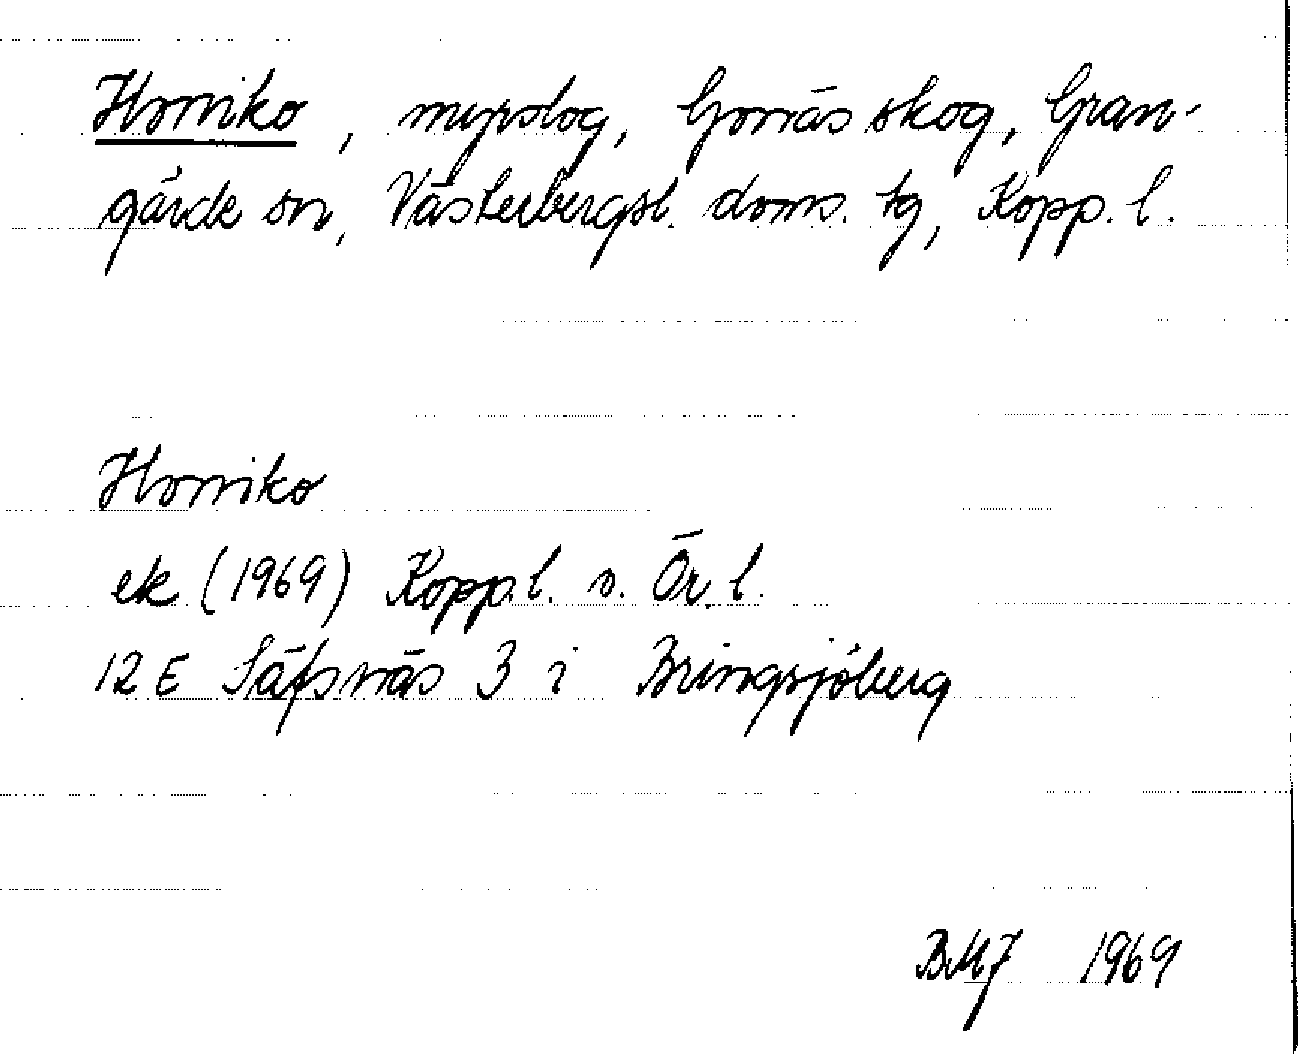 Horniko, myrslog, Gonäs skog, Gran-
gärde sn, Västerbergsl. doms. tg, Kopp. l.
Horniko
ek (1969) Kopp.l. o. Ör. l.
12 E Säfsnäs 3 i Bringsjöberg
BMJ 1969